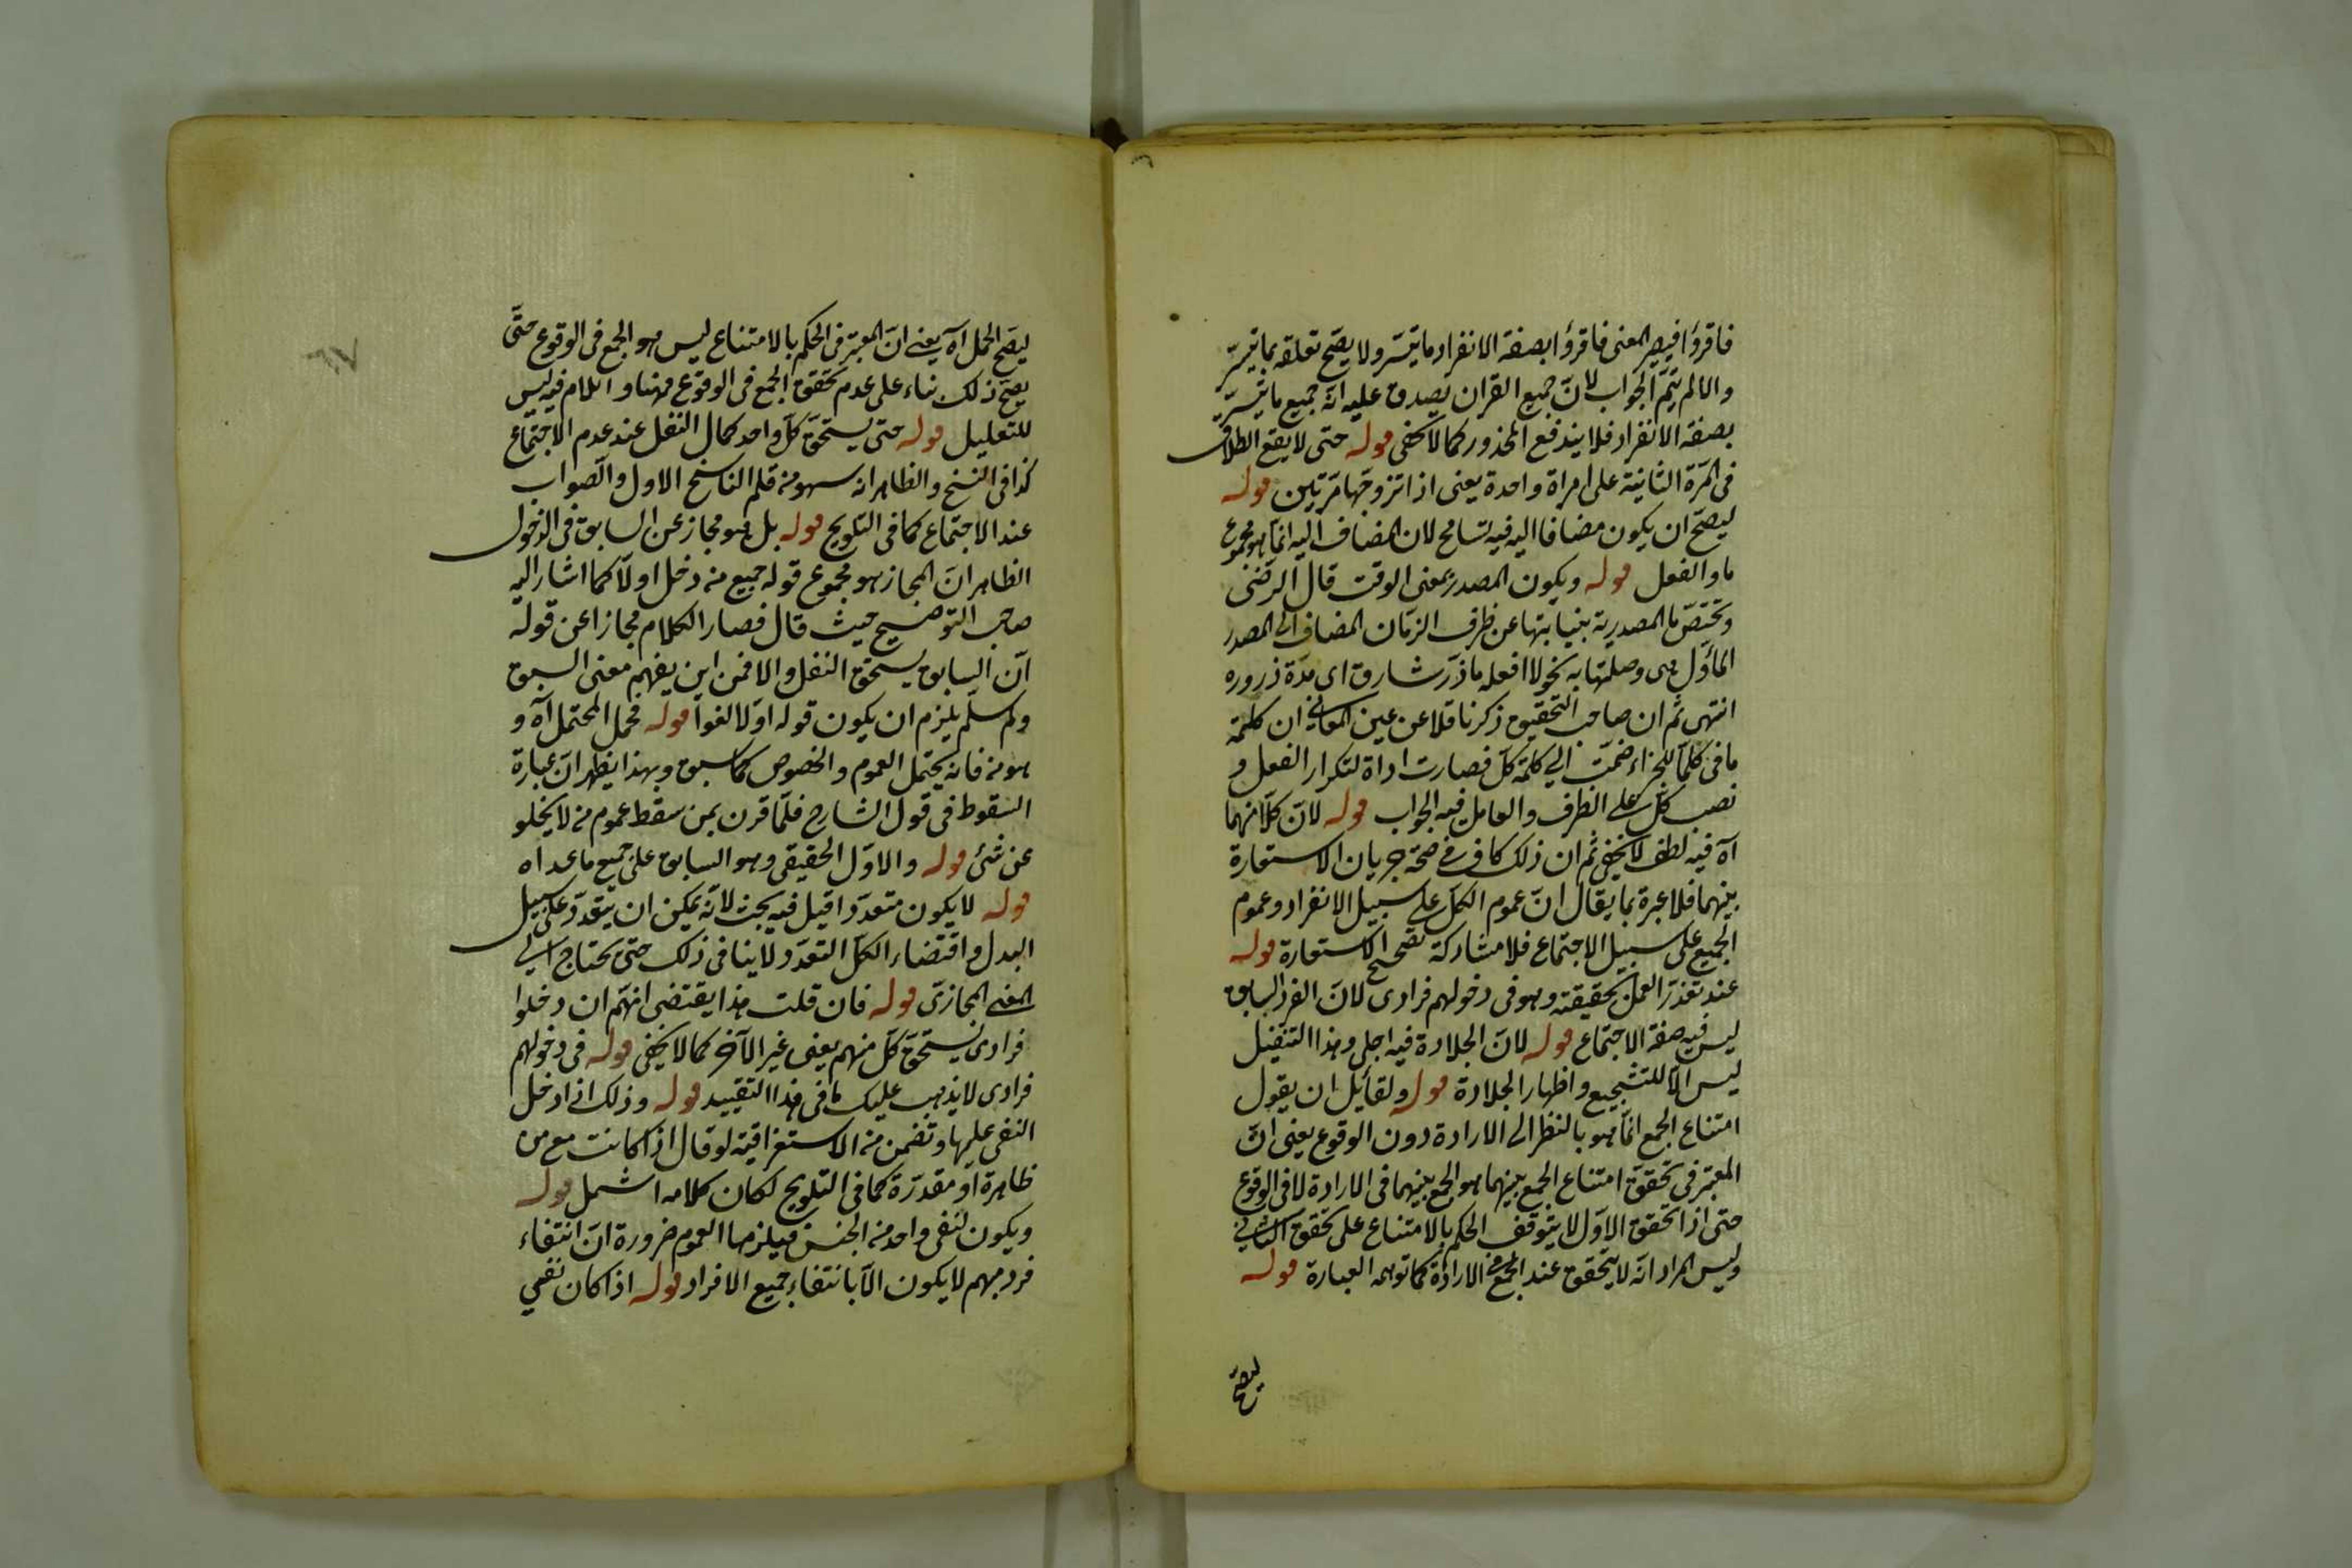 فاقرؤا فيصير المعنى فاقرؤا بصفة الانفراد ما تيسّر ولا يصحّ تعلقه بما تيسّر
والا لم يتمّ الجواب لانّ جميع القران يصدق عليه انّه جميع ما تيسّر
بصفة الانفراد فلا يندفع المحذور كما لا يخفى قوله حتى لا يقع الطلاق
فى المرّة الثانية على امراة واحدة يعنى اذا تزوجها مرتين قوله
ليصحّ ان يكون مضافا اليه فيه تسامح لان المضاف اليه انّما هو مجموع
ما والفعل قوله ويكون المصدر بمعنى الوقت قال الرضى
وتختصّ ما المصدرية بنيابتها عن ظرف الزمان المضاف الى المصدر
المأوّل هى وصلتها به نحو لا افعله ما ذرّ شارق اى مدّة ذروره
انتهى ثم ان صاحب التحقيق ذكر ناقلا عن عين المعانى ان كلمة
ما فى كلّما للجزاء ضمّت الى كلمة كلّ فصارت اداة لتكرار الفعل و
نصب كلّ على الظرف والعامل فيه الجواب قوله لانّ كلّا منهما
آه فيه لطف لا يخفى ثم ان ذلك كاف فى صحة جريان الاستعارة
بينهما فلا عبرة بما يقال انّ عموم الكلّ على سبيل الانفراد وعموم
الجميع على سبيل الاجتماع فلا مشاركة تصحح الاستعارة قوله
عند تعذّر العمل بحقيقته وهو فى دخولهم فرادى لانّ الفرد السابق
ليس فيه صفة الاجتماع قوله لانّ الجلادة فيه اجلى وهذا التنفيل
ليس الّا للتشجيع واظهار الجلادة قوله ولقائل ان يقول
امتناع الجمع انّما هو بالنظر الى الارادة دون الوقوع يعنى انّ
المعتبر فى تحقق امتناع الجمع بينهما هو الجمع بينهما فى الارادة لا فى الوقوع
حتى اذا تحقق الاوّل لا يتوقف الحكم بالامتناع على تحقق الثانى
وليس المراد انّه لا يتحقق عند الجمع فى الارادة كما توهمه العبارة قوله
ليصحّ
ليصحّ الحمل آه يعنى انّ المعتبر فى الحكم بالامتناع ليس هو الجمع فى الوقوع حتّى
يصحّ ذلك بناء على عدم تحقق الجمع فى الوقوع ههنا واللام فيه ليس
للتعليل قوله حتى يستحقّ كلّ واحد كمال النفل عند عدم الاجتماع
كذا فى النسخ والظاهر انه سهو من قلم الناسخ الاول والصواب
عند الاجتماع كما فى التلويح قوله بل هو مجاز عن السابق فى الدخول
الظاهر انّ المجاز هو مجموع قوله جميع من دخل اولا كما اشار اليه
صاحب التوضيح حيث قال فصار الكلام مجازا عن قوله
انّ السابق يستحق النفل والا فمن اين يفهم معنى السبق
ولم سلّم يلزم ان يكون قوله اوّلا لغوا قوله فحمل المحتمل آه و
هو من فانه يحتمل العموم والخصوص كما سبق وبهذا يظهر انّ عبارة
السقوط فى قول الشارح فلمّا قرن بمن سقط عموم من لا يخلو
عن شئ قوله والاوّل الحقيقى وهو السابق على جميع ما عداه
قوله لا يكون متعدّدا قيل فيه بحث لانّه يمكن ان يتعدّد على سبيل
البدل واقتضاء الكلّ التعدّد لا ينافى ذلك حتى يحتاج الى
المعنى المجازىّ قوله فان قلت هذا يقتضى انّهم ان دخلوا
فرادى يستحقّ كلّ منهم يعنى غير الآخر كما لا يخفى قوله فى دخولهم
فرادى لا يذهب عليك ما فى هذا التقييد قوله وذلك اذا دخل
النفى عليها وتضمن من الاستغراقية لو قال اذا كانت مع من
ظاهرة او مقدّرة كما فى التلويح لكان كلامه اشمل قوله
ويكون لنفى واحد من الجنس فيلزمها العموم ضرورة انّ انتفاء
فرد مبهم لا يكون الّا بانتفاء جميع الافراد قوله اذا كان نفى